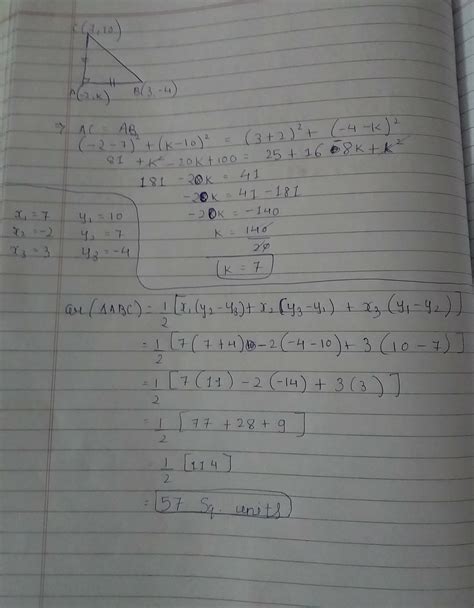 C(7,10)
A(-2,k)
B(3,-4)
⇒ AC = AB
(-2-7)² + (k-10)² = (3+2)² + (-4-k)²
81 + k² - 20k + 100 = 25 + 16 + 8k + k²
181 - 20k = 41
-20k = 41 - 181
-20k = -140
k = 140/20
k = 7
x₁ = 7 y₁ = 10
x₂ = -2 y₂ = 7
x₃ = 3 y₃ = -4
ar(ΔABC) = 1/2 [x₁(y₂-y₃) + x₂(y₃-y₁) + x₃(y₁-y₂)]
= 1/2 [7(7+4) - 2(-4-10) + 3(10-7)]
= 1/2 [7(11) - 2(-14) + 3(3)]
= 1/2 [77 + 28 + 9]
1/2 [114]
= 57 Sq. units